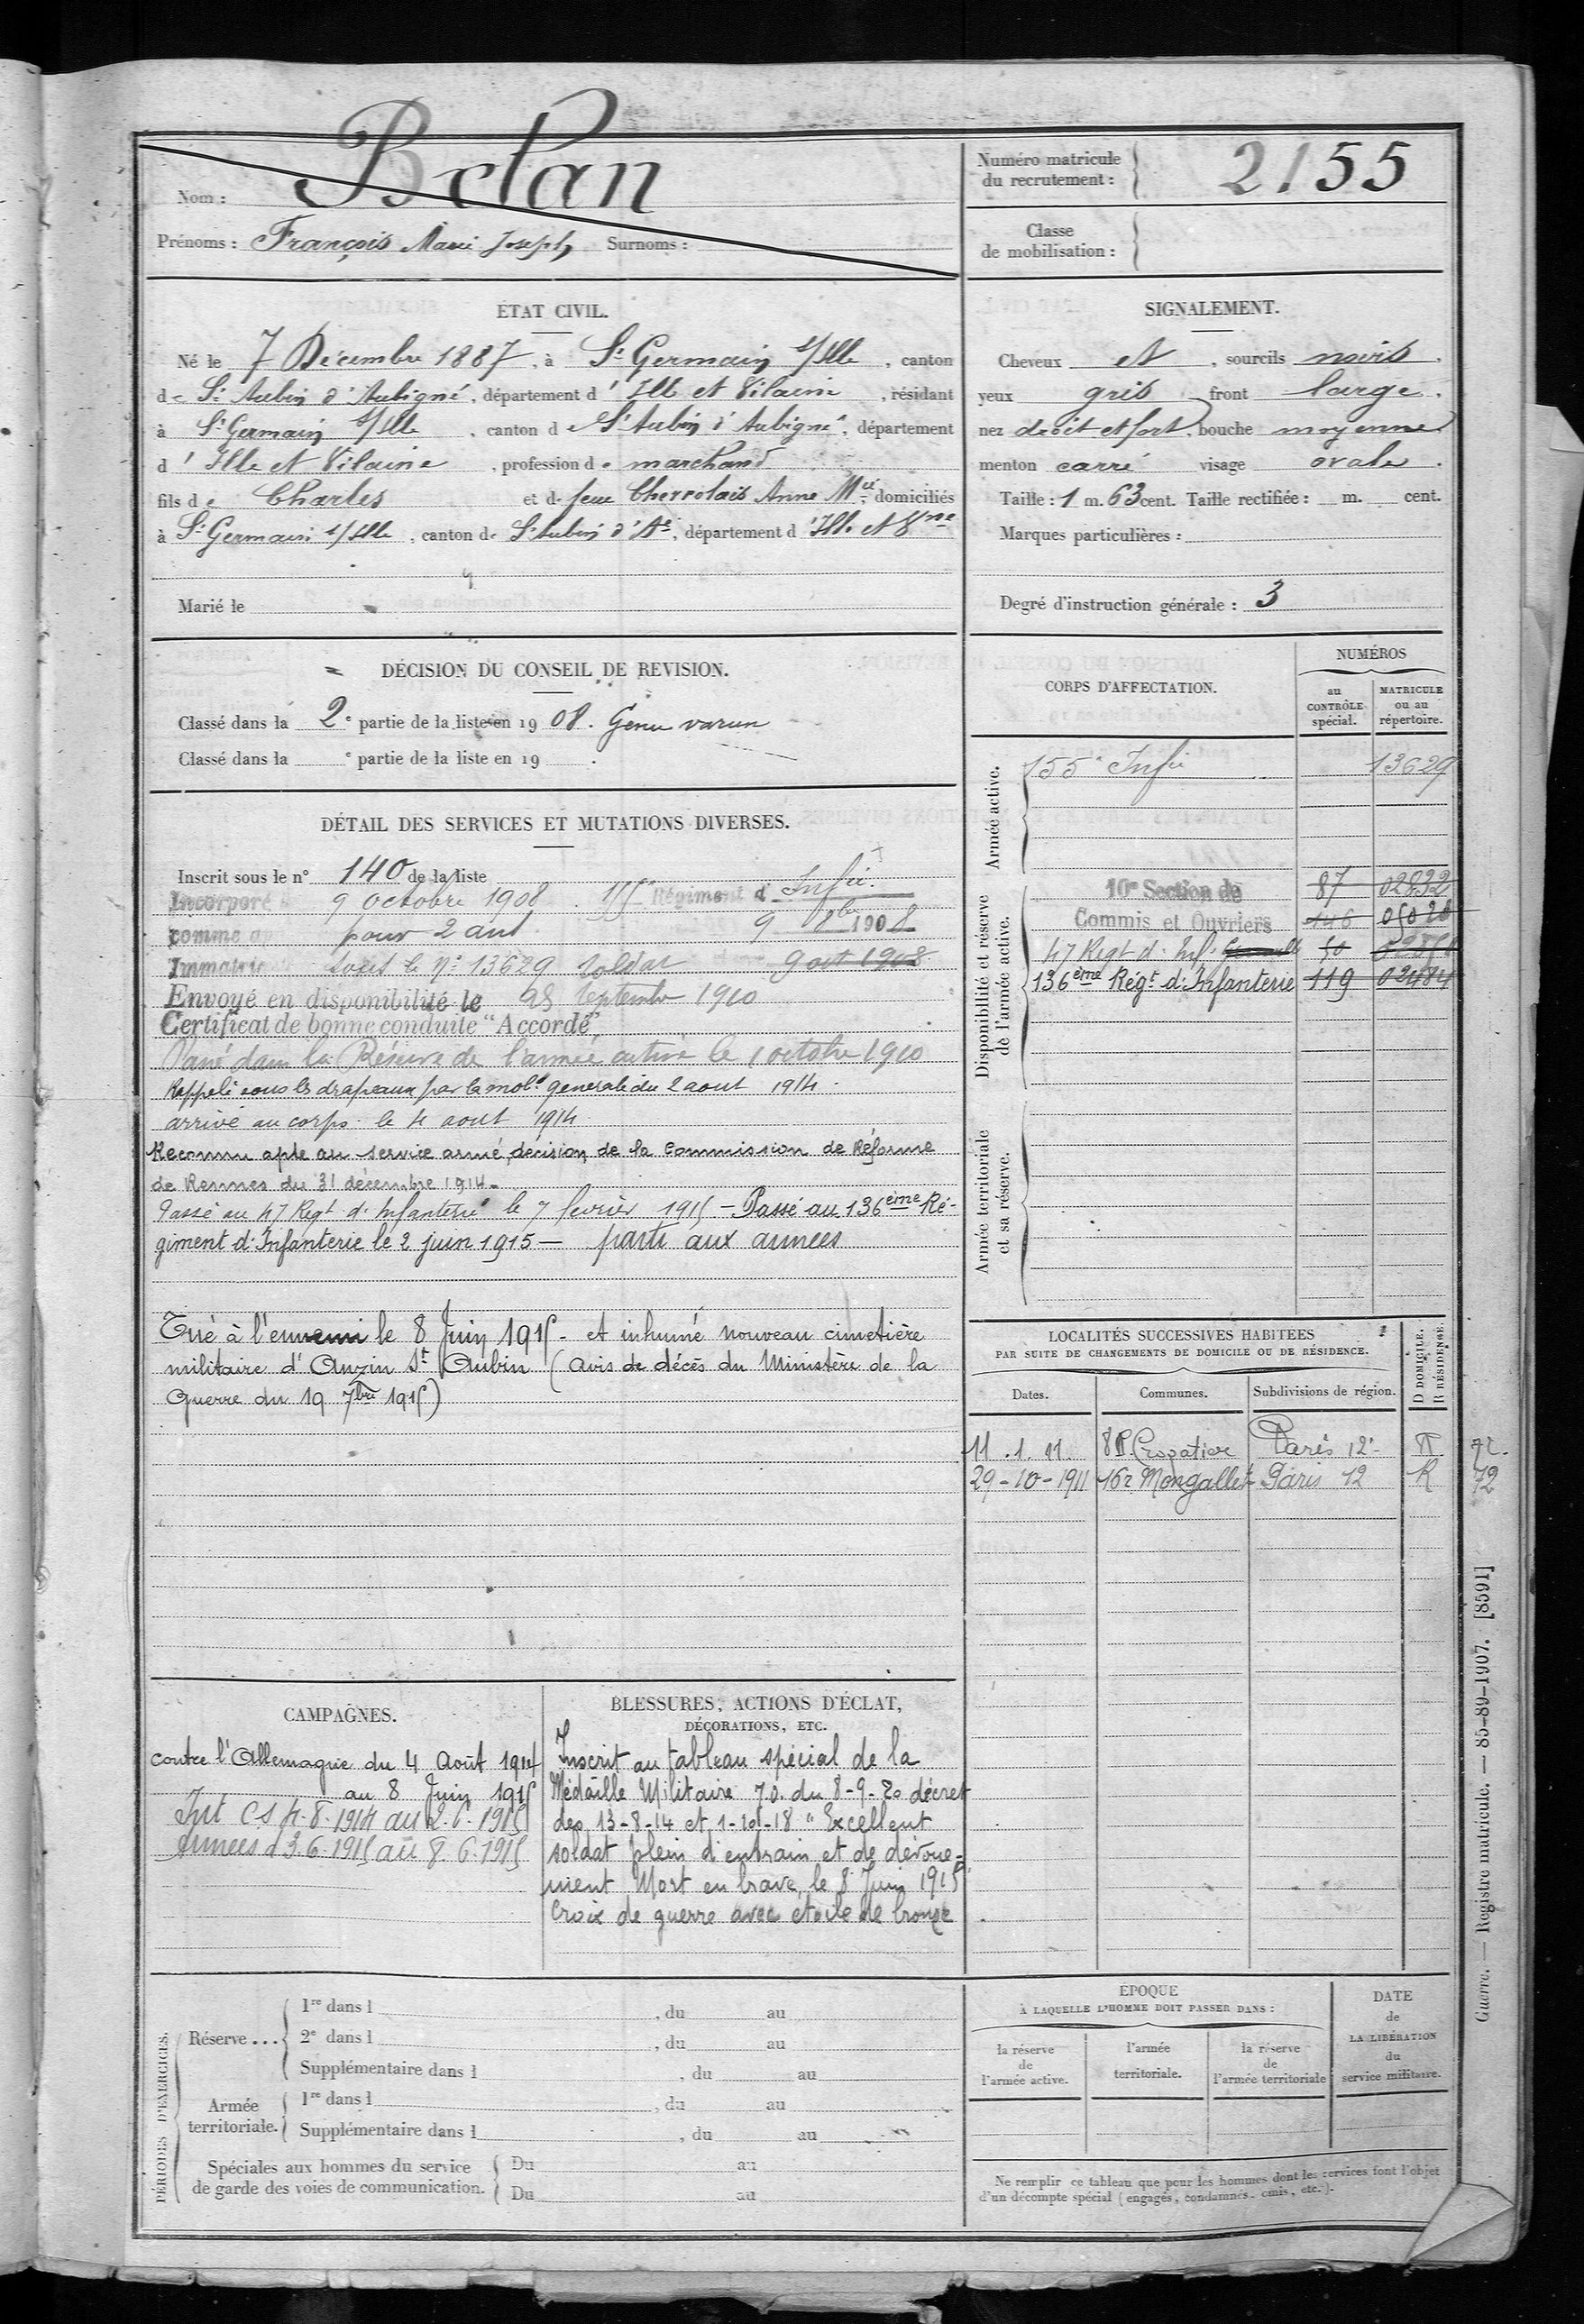 Nom : Belan
Prénoms : François Marie Joseph Surnoms :
Numéro matricule du recrutement : 2155
Classe de mobilisation :
ÉTAT CIVIL.
Né le 7 Décembre 1887, à St Germain s/Ille, canton
de St Aubin d'Aubigné, département d'Ille et Vilaine, résidant
à St Germain s/Ille, canton de St Aubin d'Aubigné, département
d'Ille et Vilaine, profession de marchand
fils de Charles et de feue Anne Mie, domiciliés
à St Germain s/Ille, canton de St Aubin d'Aé, département d'Ille et Vne
Marié le
SIGNALEMENT.
Cheveux et, sourcils noirs,
yeux gris front large,
nez droit et fort, bouche moyenne
menton carré visage ovale.
Taille : 1 m. 63 cent. Taille rectifiée : m. cent.
Marques particulières :
Degré d'instruction générale : 3
DÉCISION DU CONSEIL DE REVISION.
Classé dans la 2e partie de la liste en 1908. Genu varum
Classé dans la e partie de la liste en 19 .
DÉTAIL DES SERVICES ET MUTATIONS DIVERSES.
Inscrit sous le n° 140 de la liste
Incorporé 9 octobre 1908. 155e Régiment d'Infie.
comme pour 2 ans 9 8bre 1908
Immatric sous le N° 13629 soldat 9 oct 1908
Envoyé en disponibilité le 25 septembre 1910
Certificat de bonne conduite "Accordé"
Passé dans la Réserve de l'armée active le 1 octobre 1910
Rappelé sous les drapeaux par la mobon generale du 2 aout 1914.
arrivé au corps le 4 aout 1914
Reconnu apte au service armé, décision de la Commission de Réforme
de Rennes du 31 décembre 1914.
Passé au 47 Regt d'Infanterie le 7 fevrier 1915 – Passé au 136ème Ré-
giment d'Infanterie le 2 juin 1915 — parti aux armees
Tué à l'ennemi le 8 Juin 1915 - et inhumé nouveau cimetière
militaire d'Anzin St Aubin (avis de décès du Ministère de la
Guerre du 19 7bre 1915)
CORPS D'AFFECTATION.
NUMÉROS
au CONTRÔLE spécial.
MATRICULE ou au répertoire.
Armée active.
155e Infie 13629
Disponibilité et réserve de l'armée active.
10e Section de 87 02832
Commis et Ouvriers 146 05020
47 Regt d'Inf. 50
136ème Régt d'Infanterie 119 02484
Armée territoriale et sa réserve.
LOCALITÉS SUCCESSIVES HABITÉES
PAR SUITE DE CHANGEMENTS DE DOMICILE OU DE RÉSIDENCE.
Dates. Communes. Subdivisions de région. D DOMICILE. R RÉSIDENCE.
11.1.11. 8 R. Crozatier Paris 12e R 72.
29-10-1911 16 r Mongallet Paris 12 R 72
CAMPAGNES.
contre l'Allemagne du 4 Août 1914
au 8 Juin 1915
Int CS 4.8.1914 au 2.6.1915
Armees d 3.6.1915 au 8.6.1915
BLESSURES, ACTIONS D'ÉCLAT,
DÉCORATIONS, ETC.
Inscrit au tableau spécial de la
Médaille Militaire J.O. du 8-9-20 décret
des 13-8-14 et 1-10-18 "Excellent
soldat plein d'entrain et de dévoue-
ment Mort en brave, le 8 Juin 1915"
Croix de guerre avec étoile de bronze
PÉRIODES D'EXERCICES.
Réserve...
1re dans l , du au
2e dans l , du au
Supplémentaire dans l , du au
Armée territoriale.
1re dans l , du au
Supplémentaire dans l , du au
Spéciales aux hommes du service de garde des voies de communication.
Du au
Du au
ÉPOQUE
À LAQUELLE L'HOMME DOIT PASSER DANS :
la réserve de l'armée active.
l'armée territoriale.
la réserve de l'armée territoriale
DATE de LA LIBÉRATION du service militaire.
Ne remplir ce tableau que pour les hommes dont les services font l'objet
d'un décompte spécial (engagés, condamnés, omis, etc.).
Guerre. — Registre matricule. — 85-89-1907. [8591]